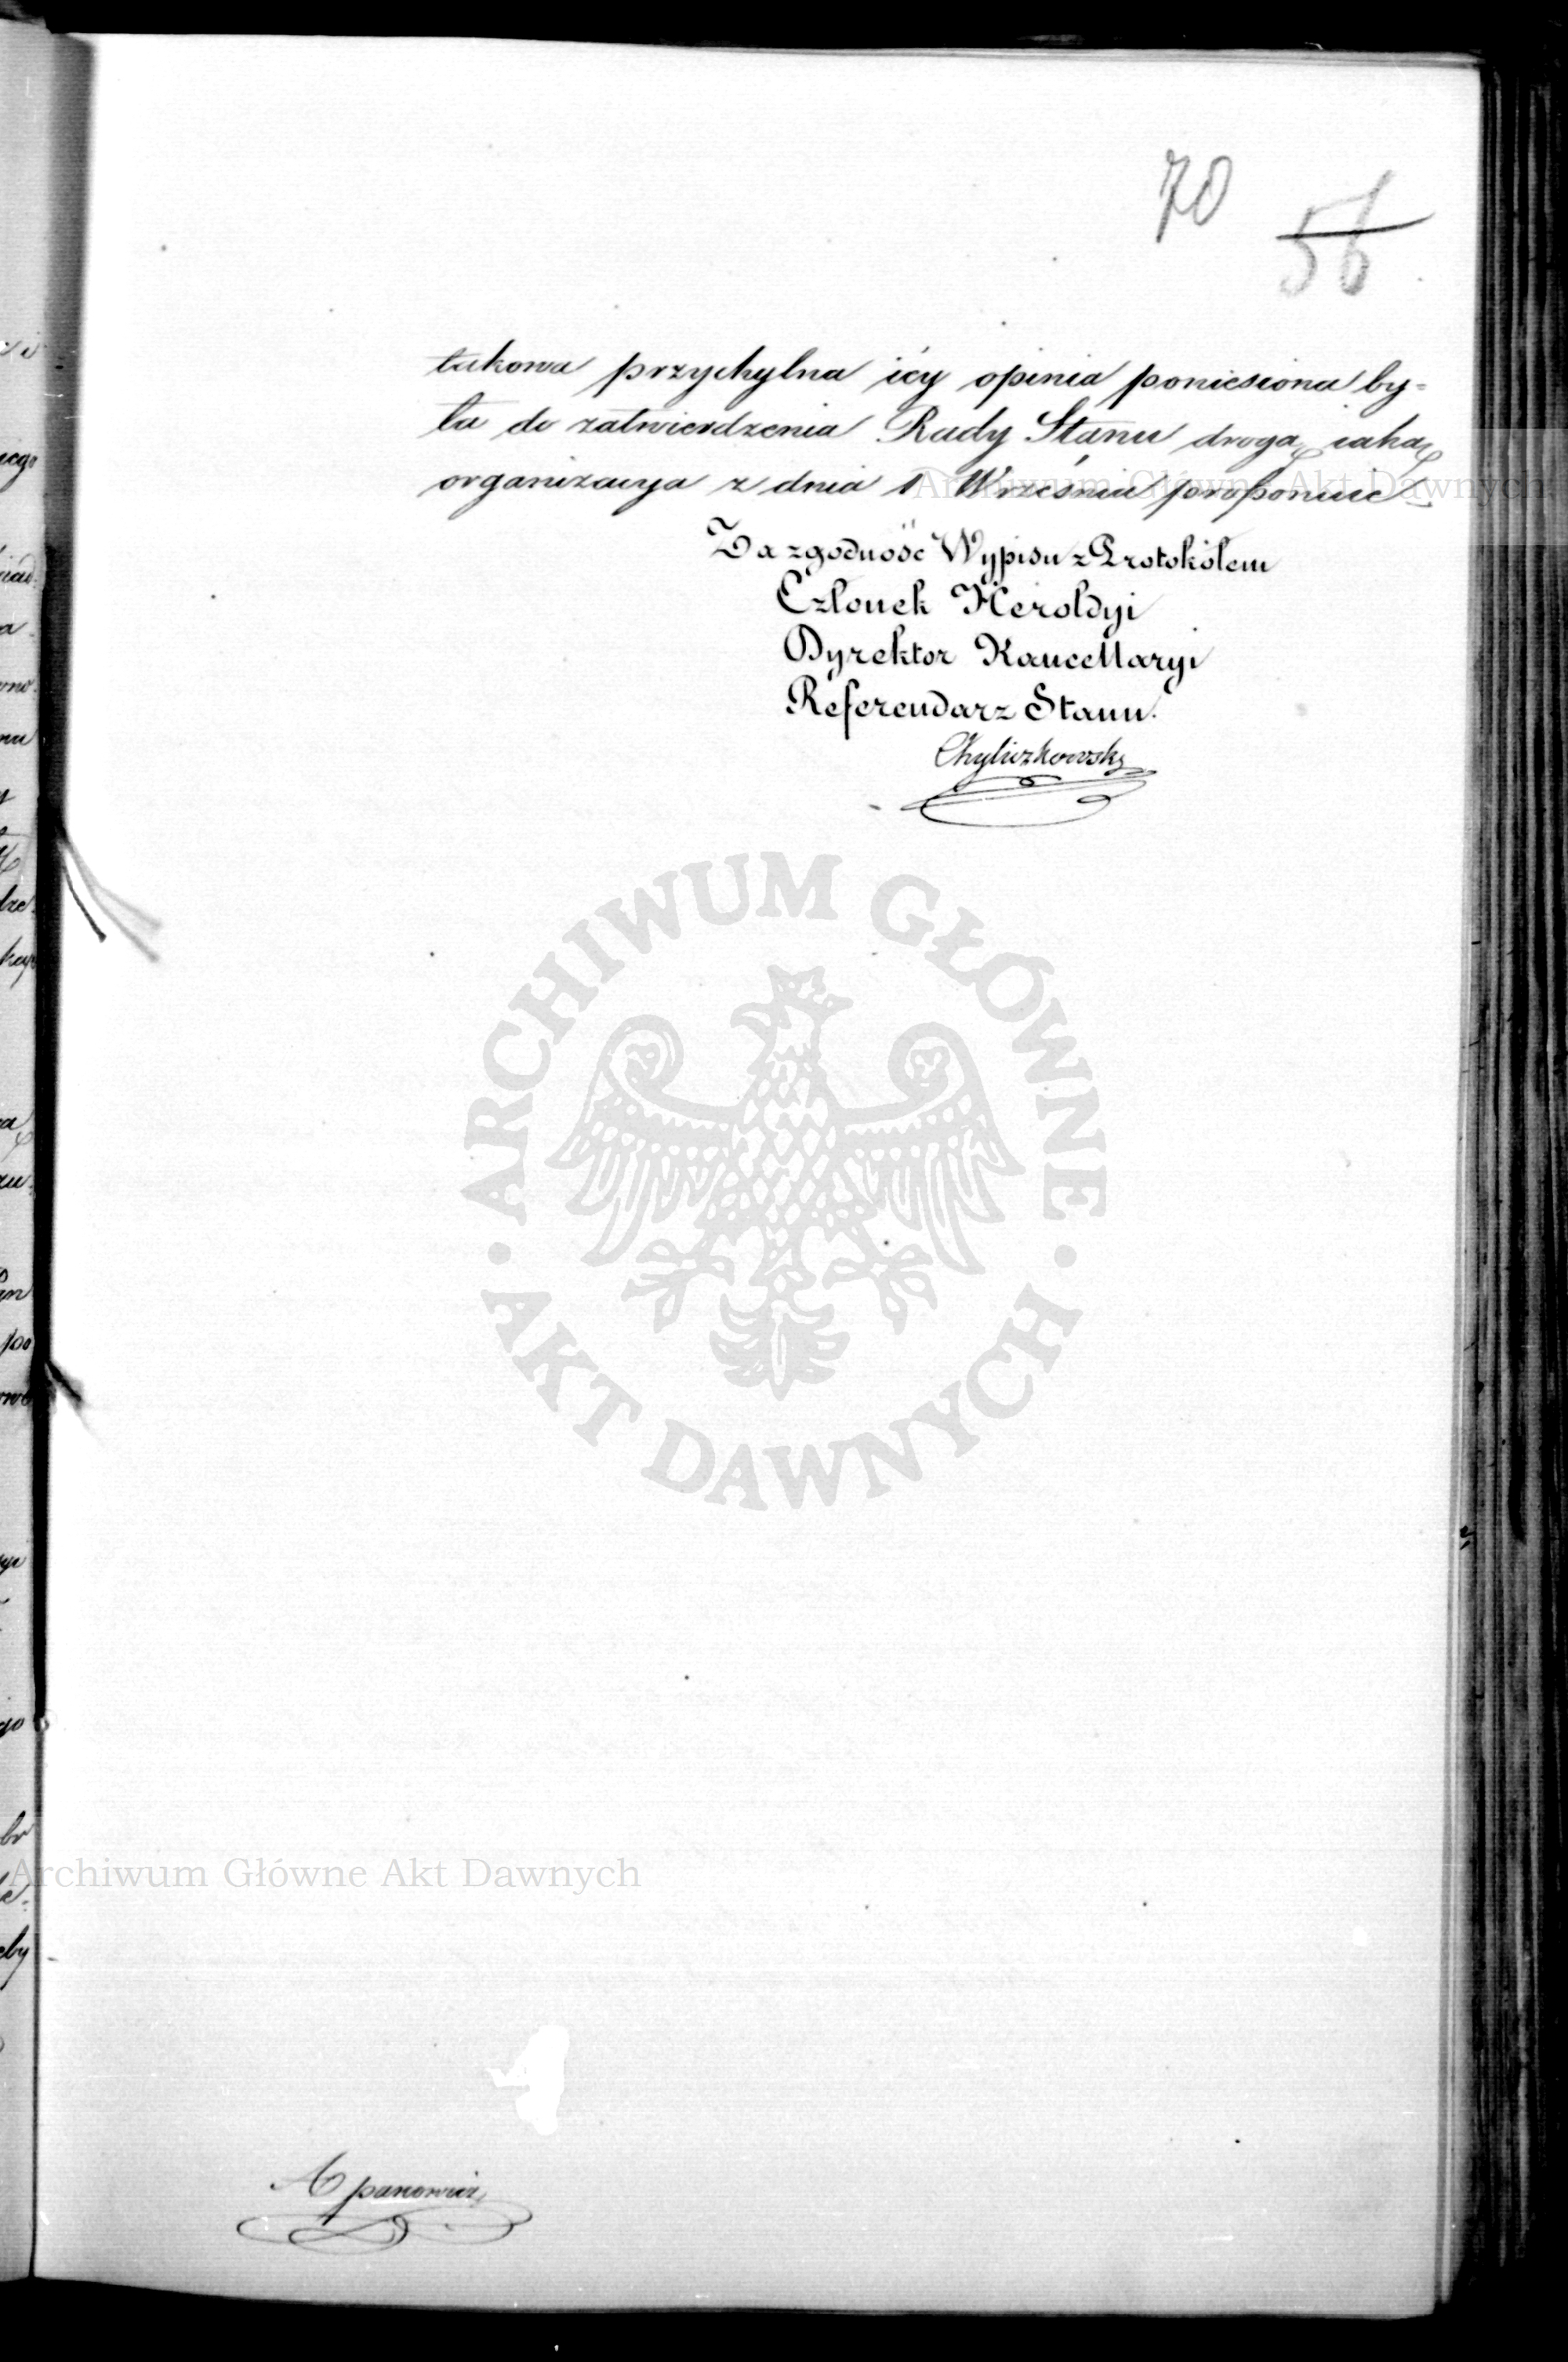 70
56
takowa przychylna iey opinia poniesiona by=
ła do zatwierdzenia Rady Stanu drogą iaką
organizacya z dnia 1 Września proponuie
Za zgodność Wypisu z Protokółem
Członek Heroldyi
Dyrektor Kancellaryi
Referendarz Stanu.
Chyliczkowski
ARCHIWUM GŁÓWNE
AKT DAWNYCH
Archiwum Główne Akt Dawnych
Archiwum Główne Akt Dawnych
Apanowicz